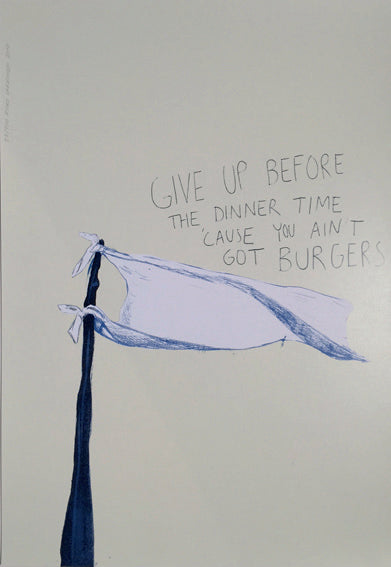 GIVE UP BEFORE
THE DINNER TIME
'CAUSE YOU AIN'T
GOT BURGERS